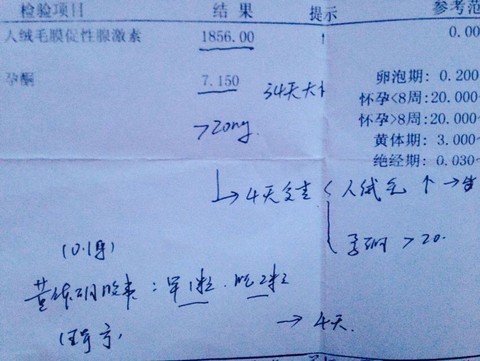 检验项目 结果 提示 参考范
人绒毛膜促性腺激素 1856.00 ↑ 0.00
孕酮 7.150 卵泡期: 0.200
34天大小
怀孕<8周:20.000
>20ng 怀孕>8周:20.000
黄体期: 3.000
绝经期: 0.030
→4天复查 人绒毛 ↑
孕酮 >20.
(0.1g)
黄体酮胶囊: 早1粒. 晚2粒
→ 4天.